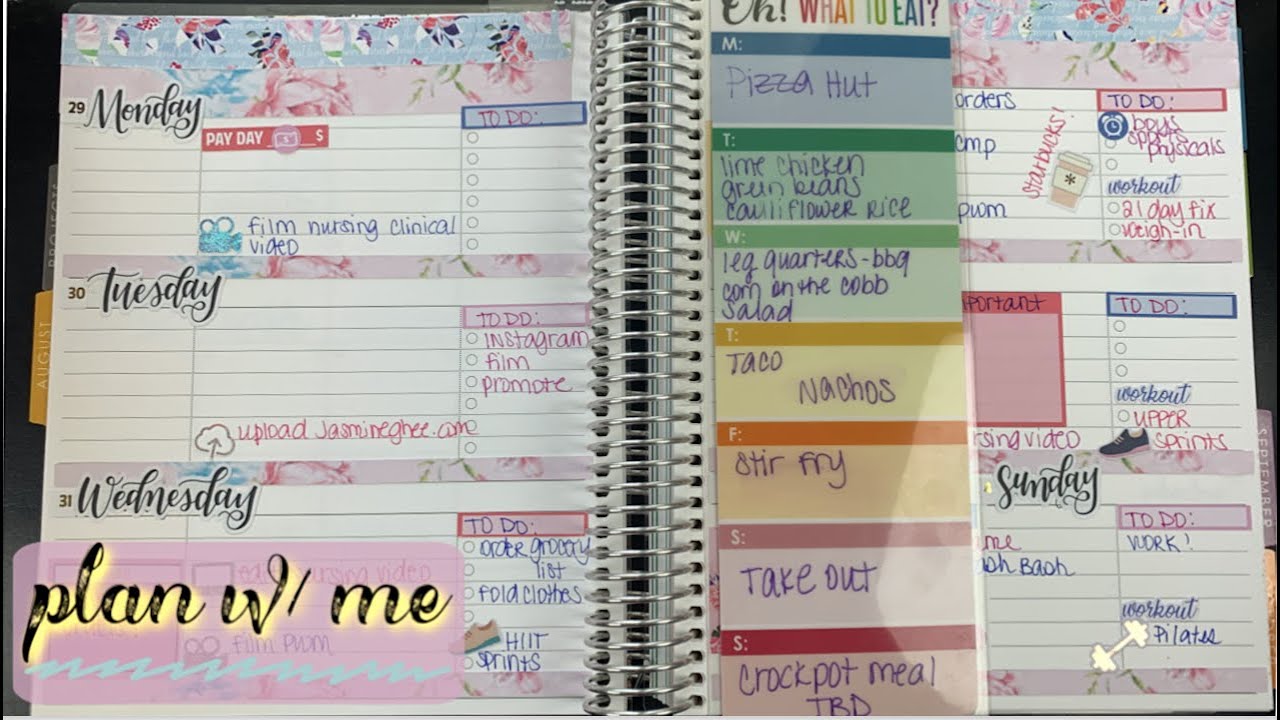 PROJECTS
AUGUST
29 Monday
PAY DAY $ $
film nursing clinical
video
TO DO:
30 Tuesday
TO DO:
Instagram
film
promote
upload Jasmineghee.com
31 Wednesday
TO DO:
order grocery
list
fold clothes
HIIT
sprints
nursing video
film pwm
plan w/ me
Oh! WHAT TO EAT?
M:
Pizza Hut
T:
lime chicken
green beans
cauliflower rice
W:
leg quarters-bbq
corn on the cobb
salad
T:
Taco
Nachos
F:
Stir fry
S:
Take out
S:
Crockpot meal
TBD
orders
cmp
pwm
Starbucks!
TO DO:
boys
sports
physicals
workout
21 day fix
weigh-in
portant
TO DO:
workout
UPPER
sprints
rsing video
Sunday
me
TO DO:
WORK!
workout
Pilates
SEPTEMBER